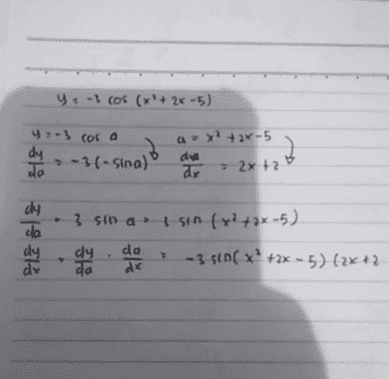 y = -3 cos (x² + 2x - 5)
y = -3 cos a    a = x² + 2x - 5
dy/da = -3 (-sin a)    da/dx = 2x + 2
dy/da = 3 sin a = 3 sin (x² + 2x - 5)
dy/dx = dy/da · da/dx = -3 sin( x² + 2x - 5) (2x + 2